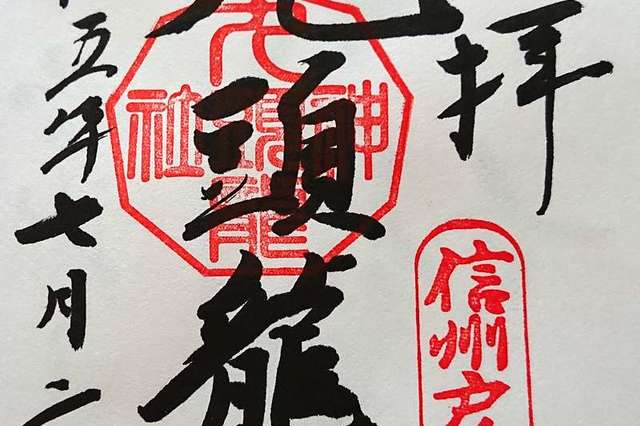 拝
信州
九頭龍
九頭龍神社
五年七月二